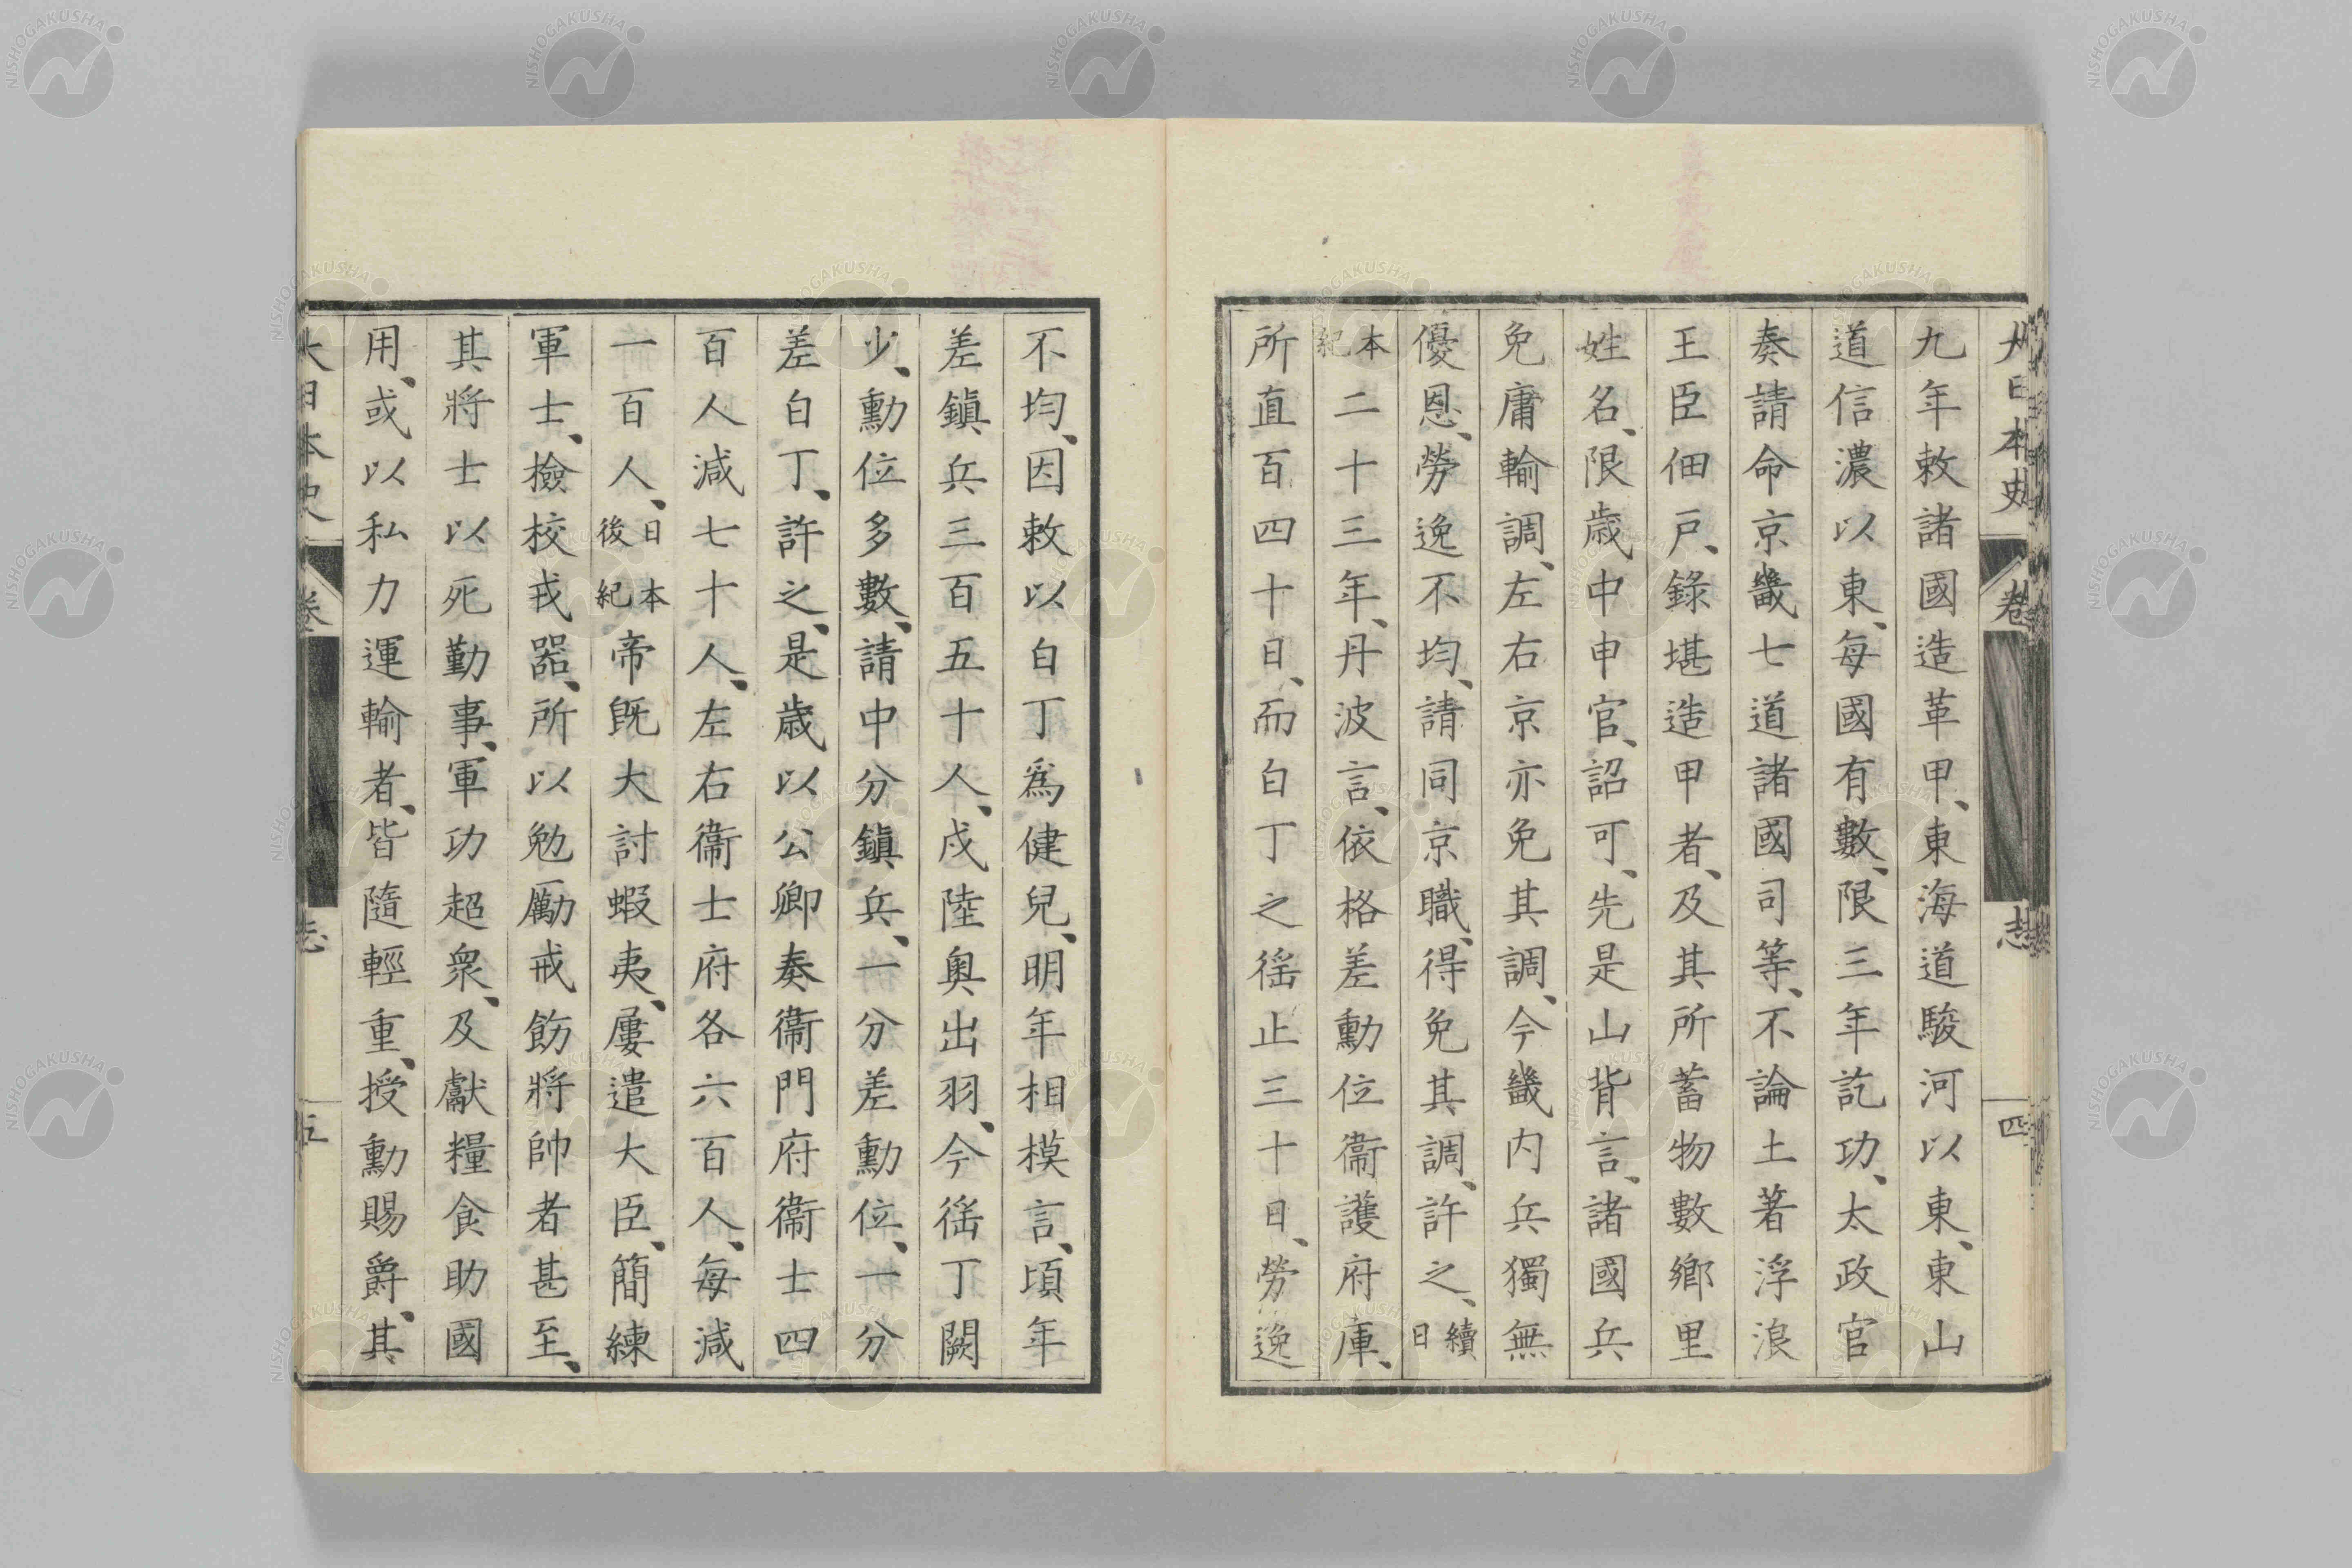 大日本史 卷 志 四
九年敕諸國造革甲、東海道駿河以東、東山
道信濃以東、每國有數、限三年訖功、太政官
奏請命京畿七道諸國司等、不論土著浮浪
王臣佃戸、錄堪造甲者、及其所蓄物數鄉里
姓名、限歲中申官、詔可、先是山背言、諸國兵
免庸輸調、左右京亦免其調、今畿内兵獨無
優恩、勞逸不均、請同京職、得免其調、許之、續日
本紀二十三年、丹波言、依格差勳位衞護府庫、
所直百四十日、而白丁之徭止三十日、勞逸
不均、因敕以白丁爲健兒、明年相模言、頃年
差鎭兵三百五十人、戍陸奧出羽、今徭丁闕
少、勳位多數、請中分鎭兵、一分差勳位、一分
差白丁、許之、是歲以公卿奏衞門府衞士四
百人減七十人、左右衞士府各六百人、每減
一百人、日本後紀帝既大討蝦夷、屢遣大臣、簡練
軍士、檢校戎器、所以勉勵戒飭將帥者甚至、
其將士以死勤事、軍功超衆、及獻糧食助國
用、或以私力運輸者、皆隨輕重、授勳賜爵、其
大日本史 卷 志 五
NISHOGAKUSHA